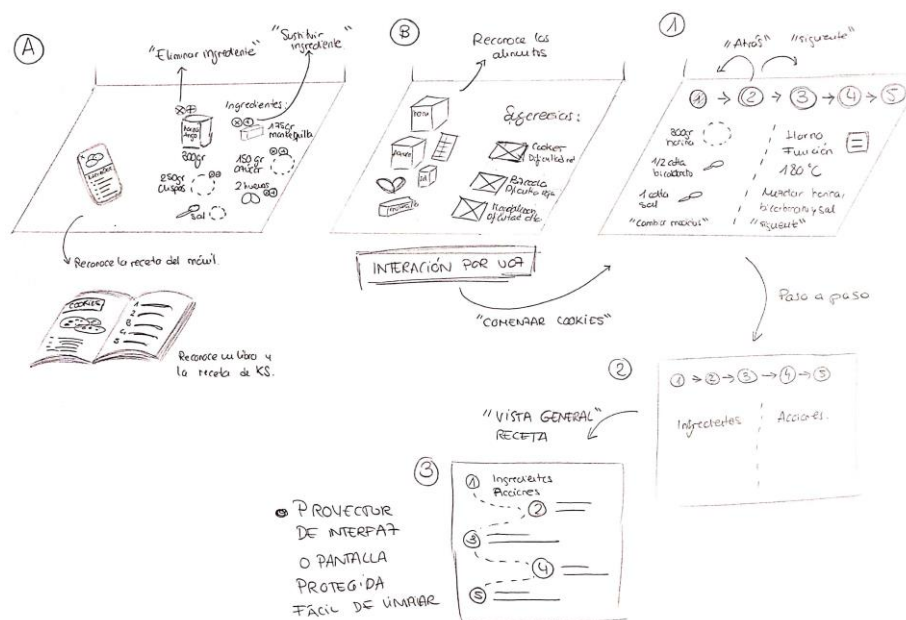 A
"Eliminar ingrediente"
"Sustituir
ingrediente"
Ingredientes:
175gr
mantequilla
300gr
150gr
azúcar
250gr
chispas
2 huevos
sal
Reconoce la receta del móvil.
COOKIES
1
2
3
4
5
Reconoce un libro y
la receta de KS.
B
Reconoce los
alimentos
Sugerencias:
Cookies
Dificultad
Dificultad
Dificultad alta
INTERACIÓN POR VOZ
"COMENZAR COOKIES"
1
"Atrás"
"siguiente"
1 → 2 → 3 → 4 → 5
300gr
harina
1/2 cdta
bicarbonato
1 cdta
sal
"Cambiar medidas"
Horno
Función
180°C
Mezclar harina,
bicarbonato y sal
"siguiente"
Paso a paso
2
1 → 2 → 3 → 4 → 5
Ingredientes
Acciones.
"VISTA GENERAL"
RECETA
3
1 Ingredientes
Acciones
2
3
4
5
PROYECTOR
DE INTERFAZ
O PANTALLA
PROTEGIDA
FÁCIL DE LIMPIAR